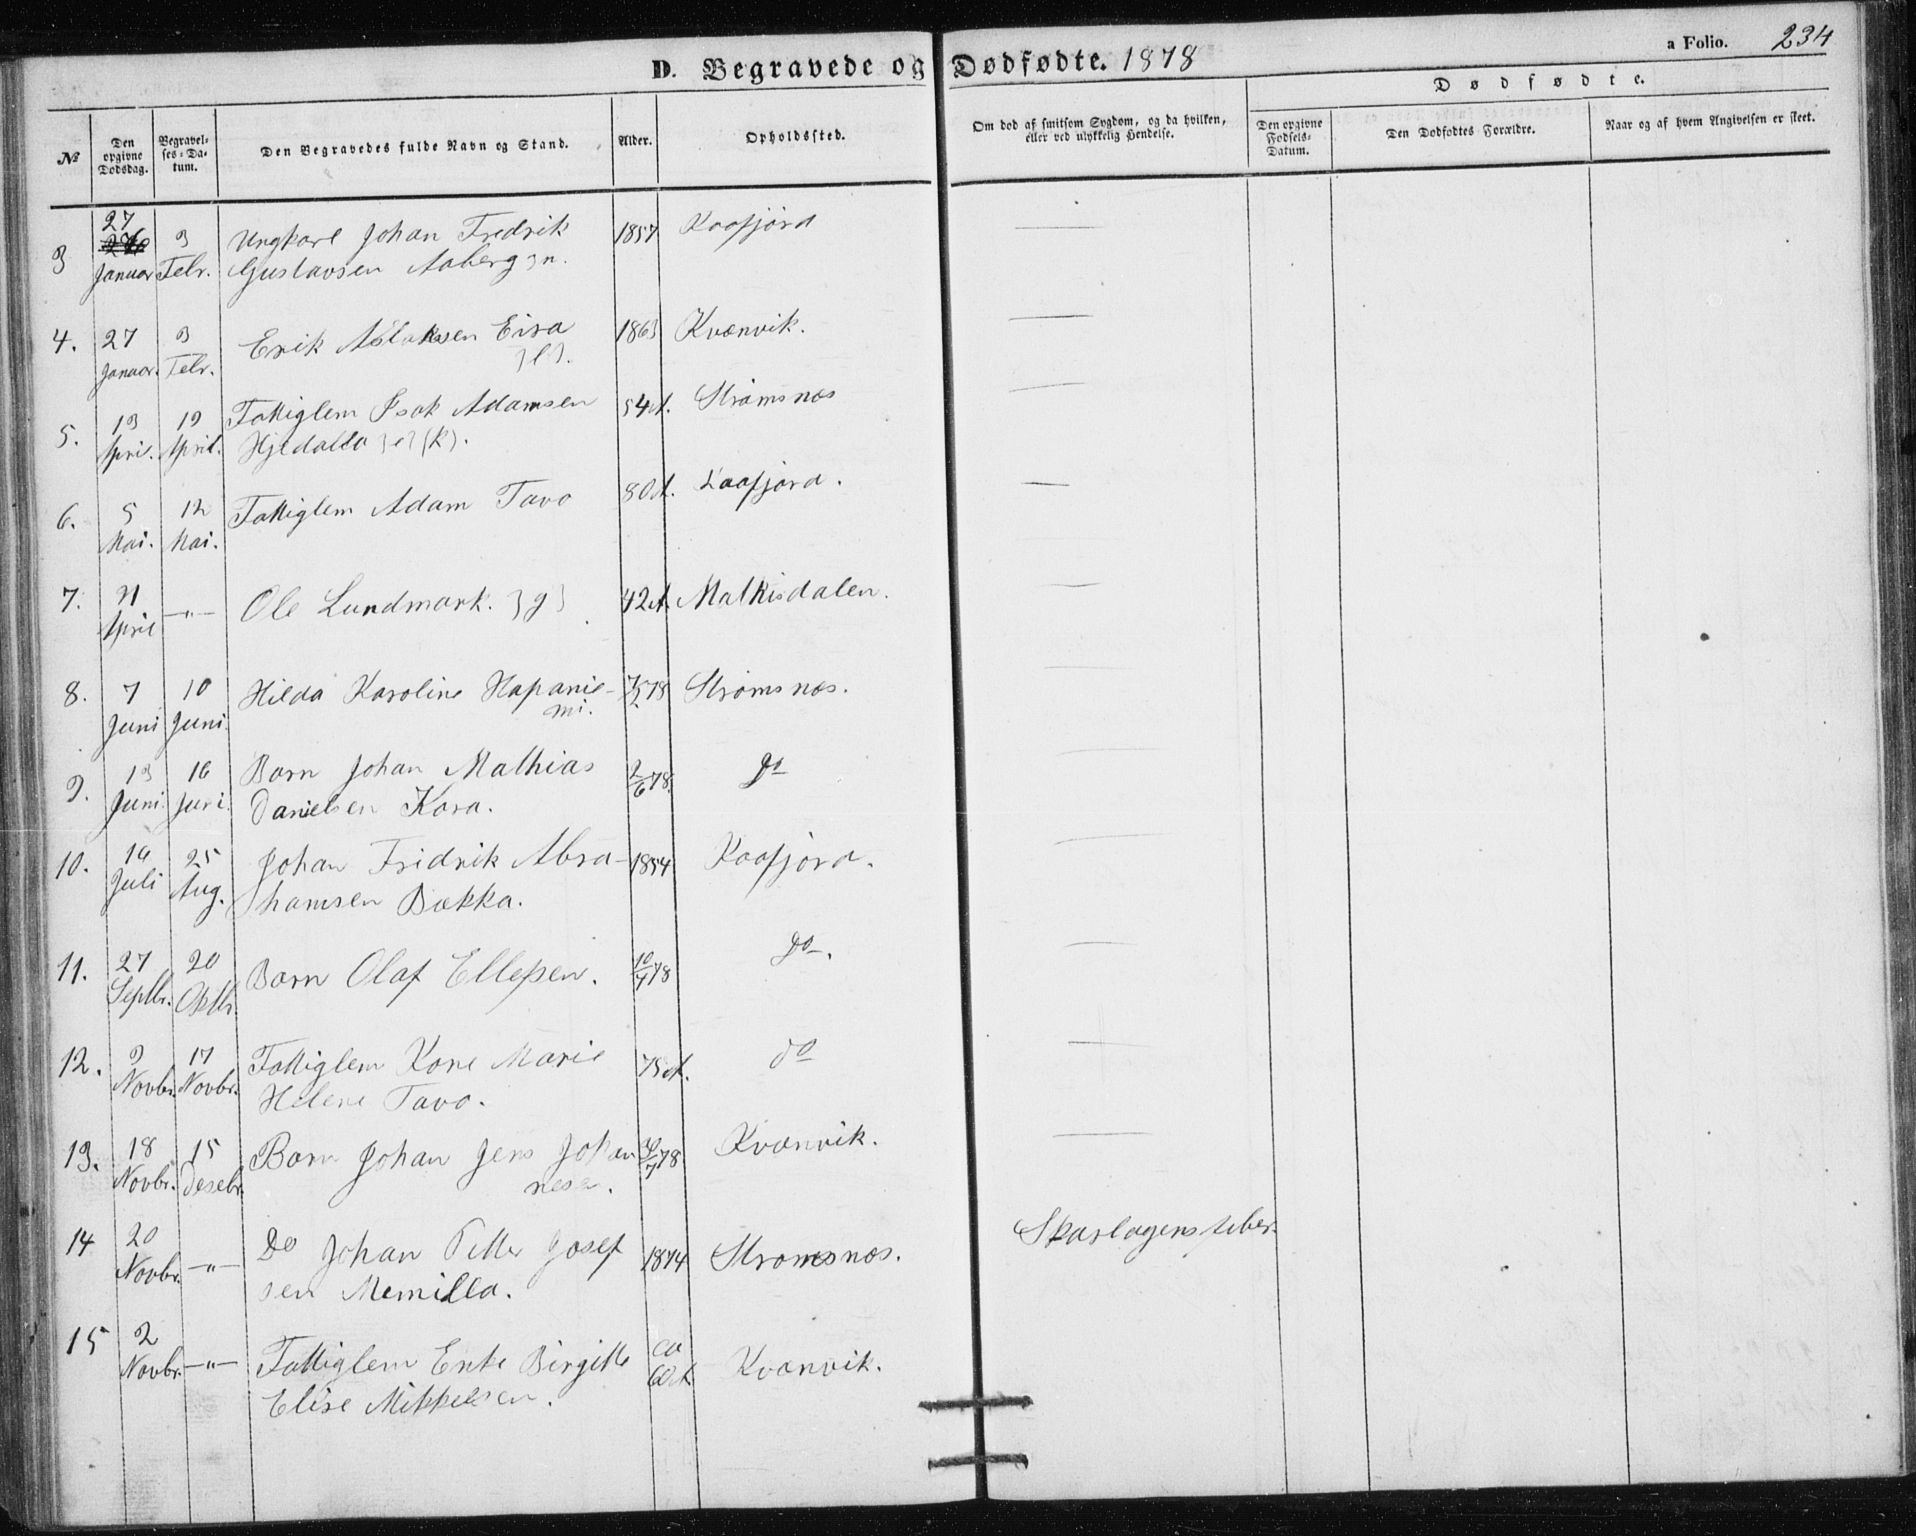 D. Begravede og Dødfødte. 1878
a Folio. 234
Dødfødte.
№
Den opgivne Dødsdag.
Begravelses-Datum.
Den Begravedes fulde Navn og Stand.
Alder.
Opholdssted.
Om død af smitsom Sygdom, og da hvilken,
eller ved ulykkelig Hendelse.
Den opgivne Fødsels-Datum.
Den Dødfødtes Forældre.
Naar og af hvem Angivelsen er skeet.
3 27 Januar 3 Febr. Ungkarl Johan Fredrik 1857 Kaafjord —
Gustavsen Aaberg }n.
4. 27 Januar. 3 Febr. Erik Aslaksen Eira 1863 Kvænvik. —
}l}.
5. 13 April. 19 April. Fattiglem Isak Adamsen 54 A. Strømsnæs —
Hjedalla }e}(k).
6. 5 Mai. 12 Mai. Fattiglem Adam Tavo 80 A. Kaafjord. —
7. 21 April —"— Ole Lundmark. }g} 42 A. Mathisdalen. —
8. 7 Juni 10 Juni. Hilda Karoline Hapanie- 7/5 78 Strømsnæs. —
mi.
9. 13 Juni. 16 Juni. Barn Johan Mathias 2/6 78. do —
Danielsen Kara.
10. 14 Juli 25 Aug. Johan Fridrik Abra- 1854 Kaafjord. —
hamsen Bækka.
11. 27 Septbr. 20 Oktbr. Barn Olaf Ellefsen. 10/7 78 do. —
12. 9 Novbr. 17 Novbr. Fattiglem Kone Marie 75 A. do —
Helene Tavo.
13. 18 Novbr. 15 Desebr. Barn Johan Jens Johan 30/7 78 Kvænvik. —
nesen.
14 20 Novbr. —"— Do Johan Petter Josef 1874 Strømsnæs. Skarlagensfeber.
sen Memilla.
15 2 Novbr. —"— Fattiglem Enke Birgitte ca 60 A. Kvænvik.
Elise Mikkelsen.